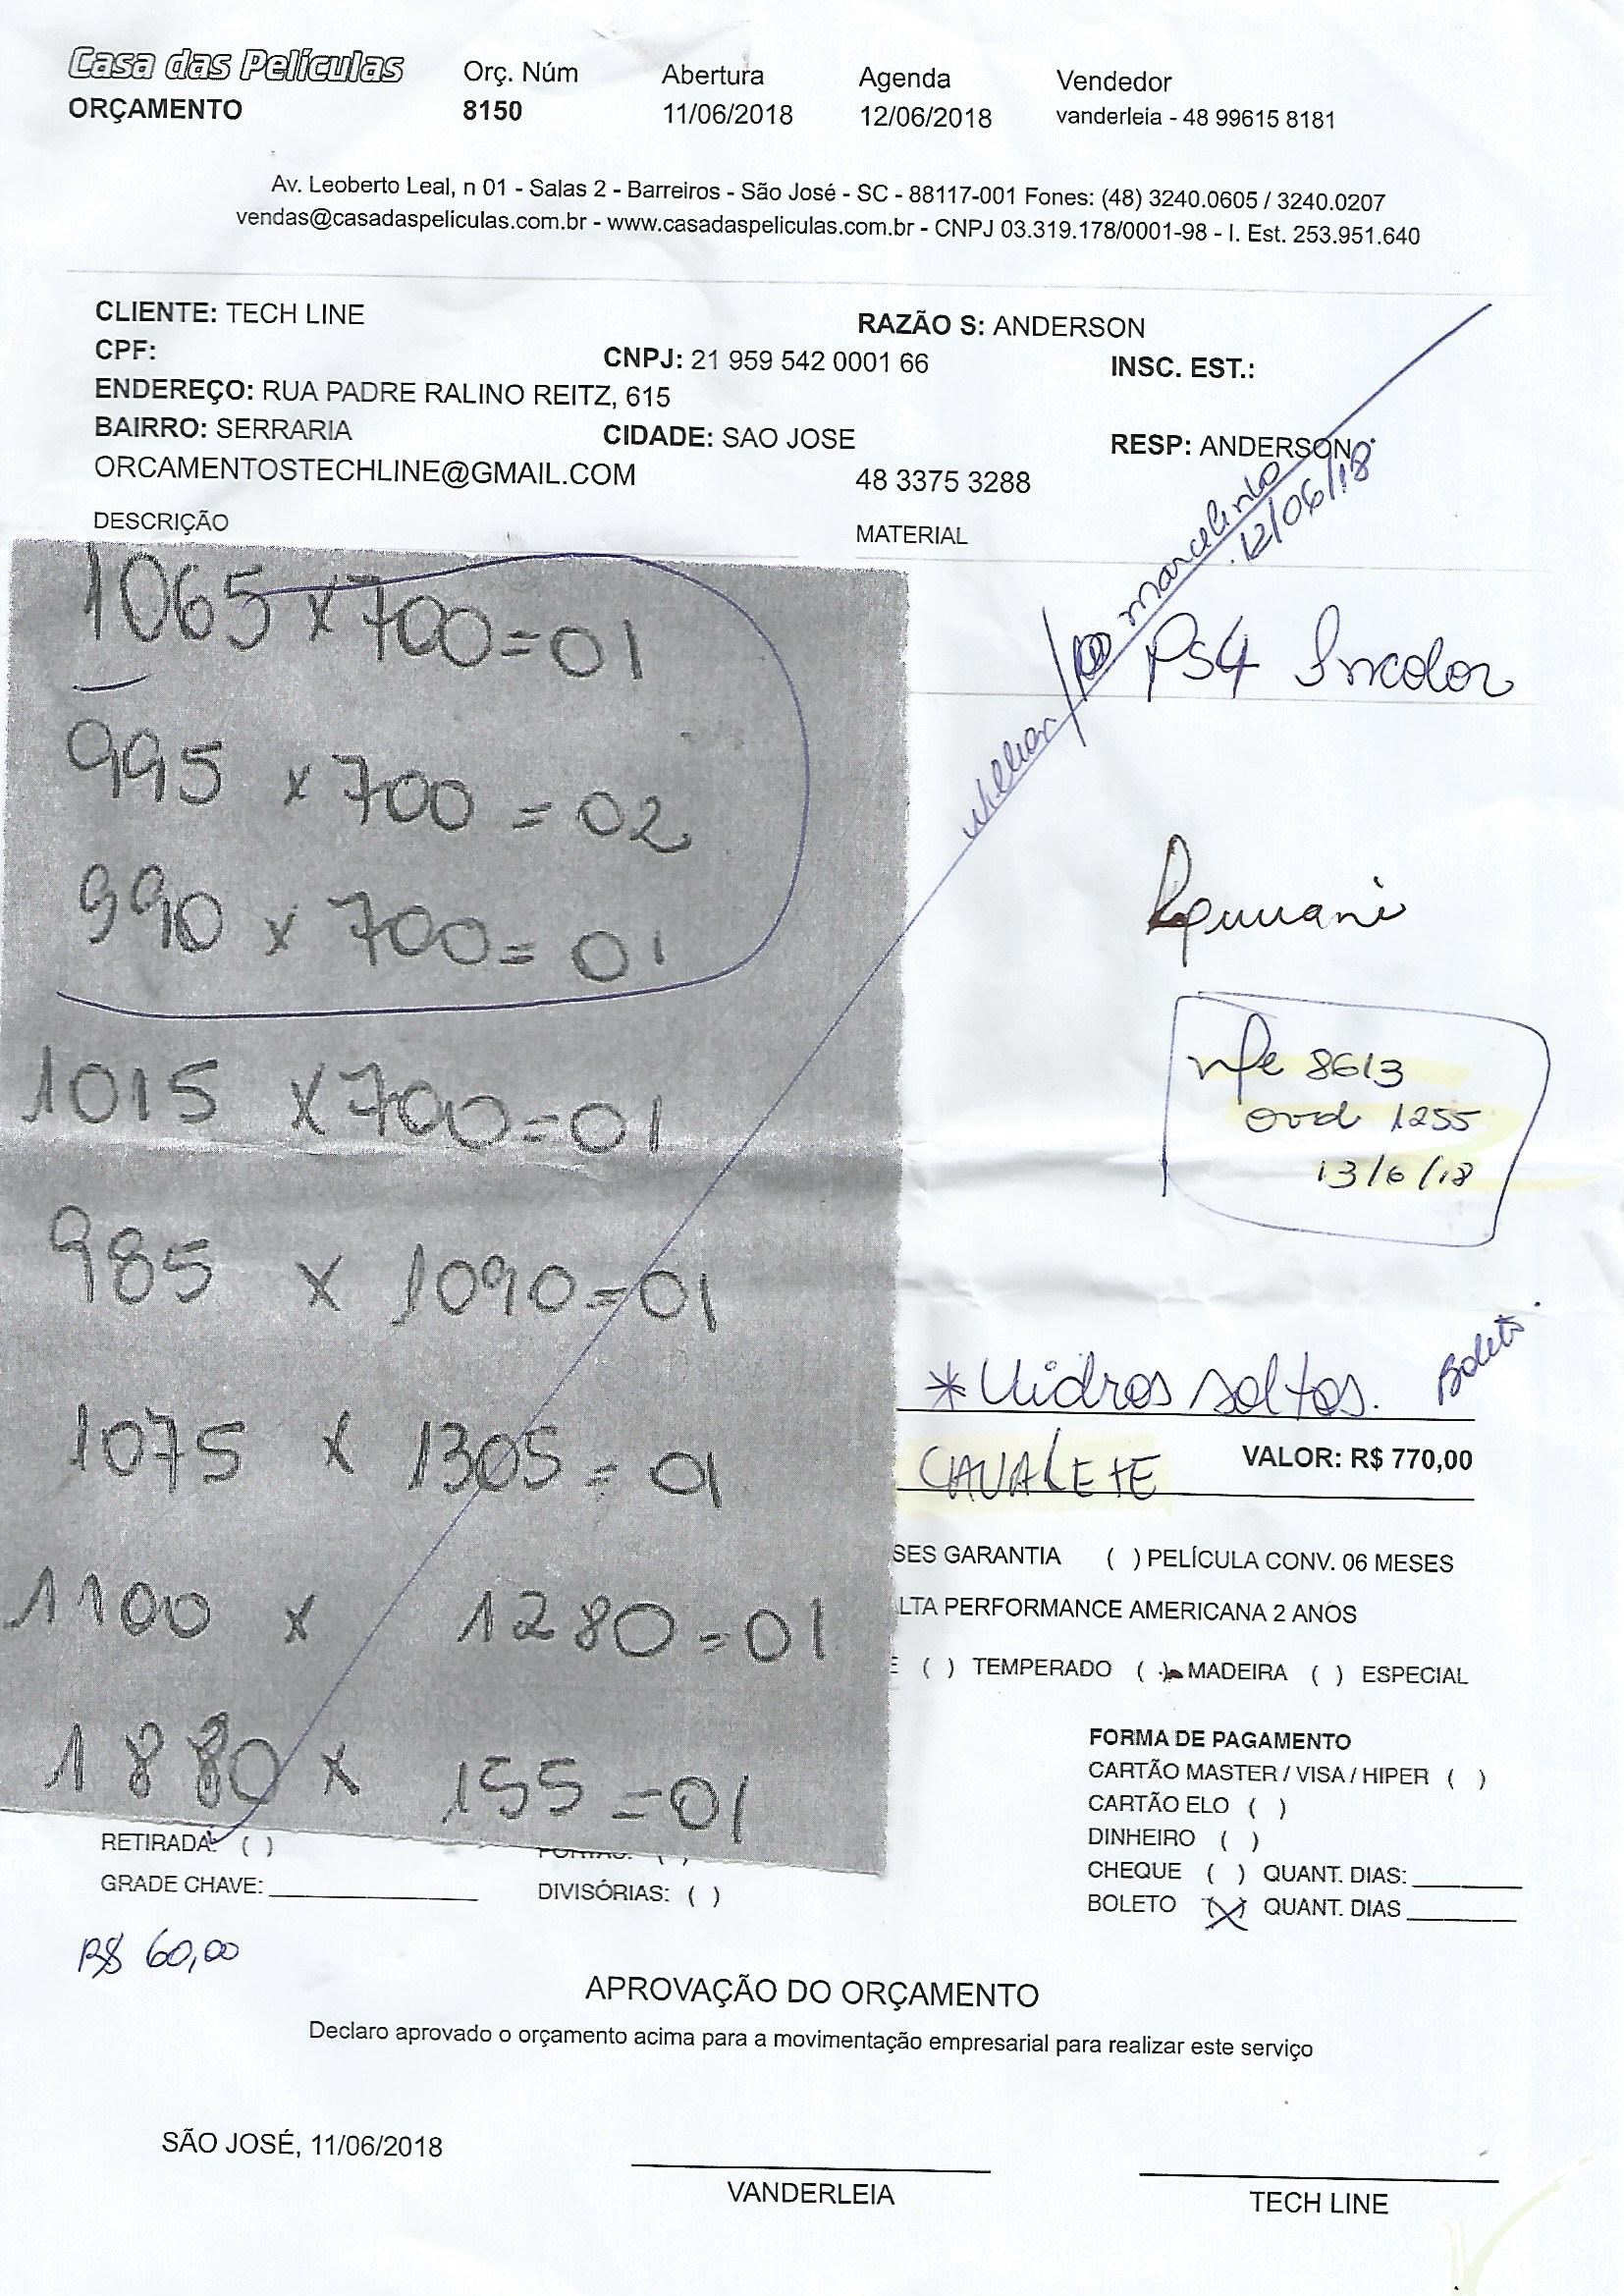 Casa das Películas
ORÇAMENTO
Orç. Núm
8150
Abertura
11/06/2018
Agenda
12/06/2018
Vendedor
vanderleia - 48 99615 8181
Av. Leoberto Leal, n 01 - Salas 2 - Barreiros - São José - SC - 88117-001 Fones: (48) 3240.0605 / 3240.0207
vendas@casadaspeliculas.com.br - www.casadaspeliculas.com.br - CNPJ 03.319.178/0001-98 - I. Est. 253.951.640
CLIENTE: TECH LINE
RAZÃO S: ANDERSON
CPF:
CNPJ: 21 959 542 0001 66
INSC. EST.:
ENDEREÇO: RUA PADRE RALINO REITZ, 615
BAIRRO: SERRARIA
CIDADE: SAO JOSE
RESP: ANDERSON
ORCAMENTOSTECHLINE@GMAIL.COM
48 3375 3288
DESCRIÇÃO
MATERIAL
marcelinho
12/06/18
1065 x 700 = 01
PS4 Incolor
995 x 700 = 02
990 x 700 = 01
nfe 8613
1015 x 700 = 01
ovd 1255
13/6/18
985 x 1090 = 01
Boleto
* Vidros soltos.
1075 x 1305 = 01
CAVALETE
VALOR: R$ 770,00
SES GARANTIA ( ) PELÍCULA CONV. 06 MESES
1100 x 1280 = 01
LTA PERFORMANCE AMERICANA 2 ANOS
E ( ) TEMPERADO ( ) MADEIRA ( ) ESPECIAL
1880 x 155 = 01
FORMA DE PAGAMENTO
CARTÃO MASTER / VISA / HIPER ( )
CARTÃO ELO ( )
DINHEIRO ( )
RETIRADA: ( )
PORTAS: ( )
CHEQUE ( ) QUANT. DIAS:
GRADE CHAVE:
DIVISÓRIAS: ( )
BOLETO (X) QUANT. DIAS
R$ 60,00
APROVAÇÃO DO ORÇAMENTO
Declaro aprovado o orçamento acima para a movimentação empresarial para realizar este serviço
SÃO JOSÉ, 11/06/2018
VANDERLEIA
TECH LINE